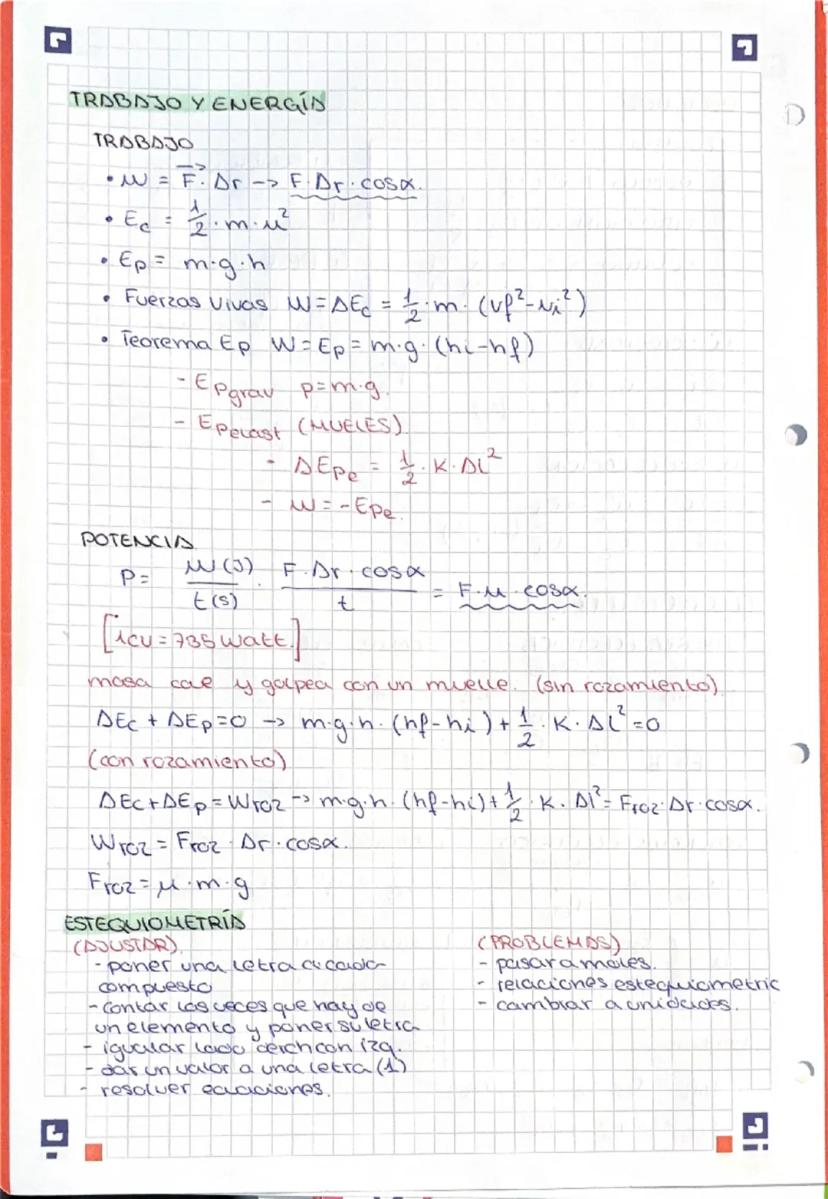 TRABAJO Y ENERGÍA
TRABAJO
• W = F⃗ · Δr -> F · Δr · cosα.
• Ec = 1/2 · m · v²
• Ep = m·g·h
• Fuerzas vivas W = ΔEc = 1/2 · m · (vf² - vi²)
• Teorema Ep W = Ep = m·g·(hi-hf)
- Epgrav p=m·g.
- Epelast (MUELES)
- ΔEpe = 1/2 · K · Δl²
- W = -Epe.
POTENCIA
P = W(J)/t(s) · F·Δr·cosα/t = F·v·cosα.
[1CV = 735 Watt.]
masa cae y golpea con un muelle. (sin rozamiento)
ΔEc + ΔEp = 0 -> m·g·h·(hf-hi) + 1/2 · K · Δl² = 0
(con rozamiento)
ΔEc + ΔEp = Wroz -> m·g·h·(hf-hi) + 1/2 · K · Δl² = Froz · Δr · cosα.
Wroz = Froz · Δr · cosα.
Froz = μ · m · g
ESTEQUIOMETRÍA
(AJUSTAR)
- poner una letra a cada
compuesto
- contar las veces que hay de
un elemento y poner su letra
- igualar lado derch con izq.
- dar un valor a una letra (1)
- resolver ecuaciones.
(PROBLEMAS)
- pasar a moles.
- relaciones estequiometric
- cambiar a unidades.